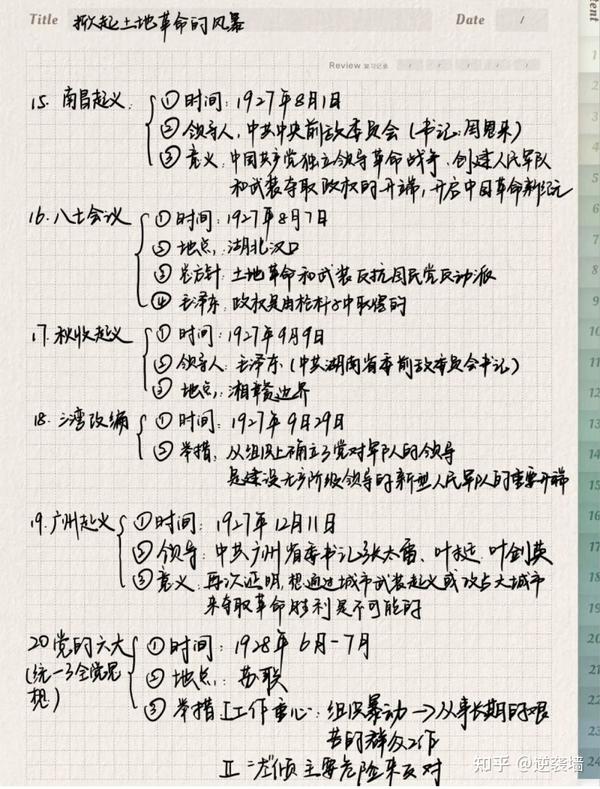 Title 掀起土地革命的风暴 Date /
Review 复习记录 / / / / /
15. 南昌起义: ① 时间: 1927年8月1日
② 领导人: 中共中央前敌委员会 (书记:周恩来)
③ 意义: 中国共产党独立领导革命战争、创建人民军队
和武装夺取政权的开端, 开启中国革命新纪元
16. 八七会议 ① 时间: 1927年8月7日
② 地点: 湖北汉口
③ 总方针: 土地革命和武装反抗国民党反动派
④ 毛泽东: 政权是由枪杆子中取得的
17. 秋收起义 ① 时间: 1927年9月9日
② 领导人: 毛泽东 (中共湖南省委前敌委员会书记)
③ 地点: 湘赣边界
18. 三湾改编 ① 时间: 1927年9月29日
② 举措: 从组织上确立了党对军队的领导
是建设无产阶级领导的新型人民军队的重要开端
19. 广州起义 ① 时间: 1927年12月11日
② 领导: 中共广州省委书记张太雷、叶挺、叶剑英
③ 意义: 再次证明, 想通过城市武装起义或攻占大城市
来夺取革命胜利是不可能的
20 党的六大 ① 时间: 1928年6月-7月
(统一了全党思想) ② 地点: 苏联
③ 举措 I 工作重心: 组织暴动→从事长期的艰
苦的群众工作
II "左"倾主要危险来反对
tent
1
2
3
4
5
6
7
8
9
10
11
12
13
14
15
16
17
18
19
20
21
22
23
24
知乎 @逆袭墙